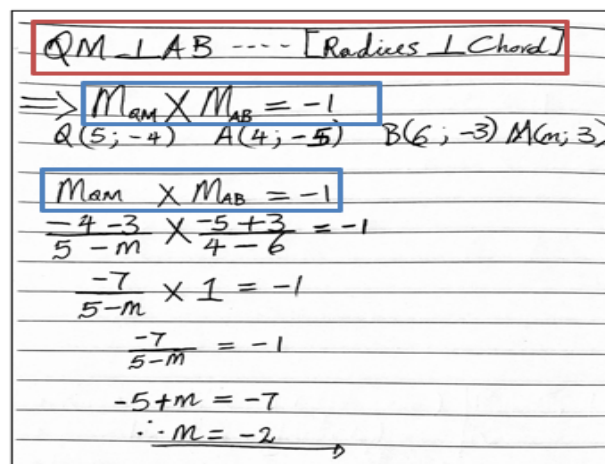 QM ⊥ AB ---- [Radices ⊥ Chord]
=> MQM X MAB = -1
Q(5; -4) A(4; -5) B(6; -3) M(m; 3)
MQM X MAB = -1
(-4-3)/(5-m) X (-5+3)/(4-6) = -1
-7/(5-m) X 1 = -1
-7/(5-m) = -1
-5+m = -7
∴ m = -2